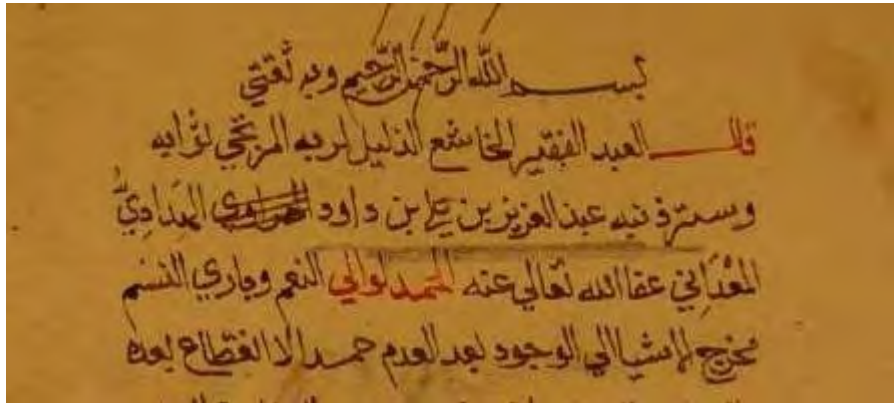 بسم الله الرحمن الرحيم وبه ثقتي
قال العبد الفقير الخاشع الذليل لربه المرتجي لثوابه
وستر ذنبه عبد العزيز بن علي بن داود الهَدادِيُّ
المعْدَاني عفا الله تعالى عنه الحمد لوالي النعم وباري النسم
مخرج الاشيا الي الوجود بعد العدم حمدا لا انقطاع لعده